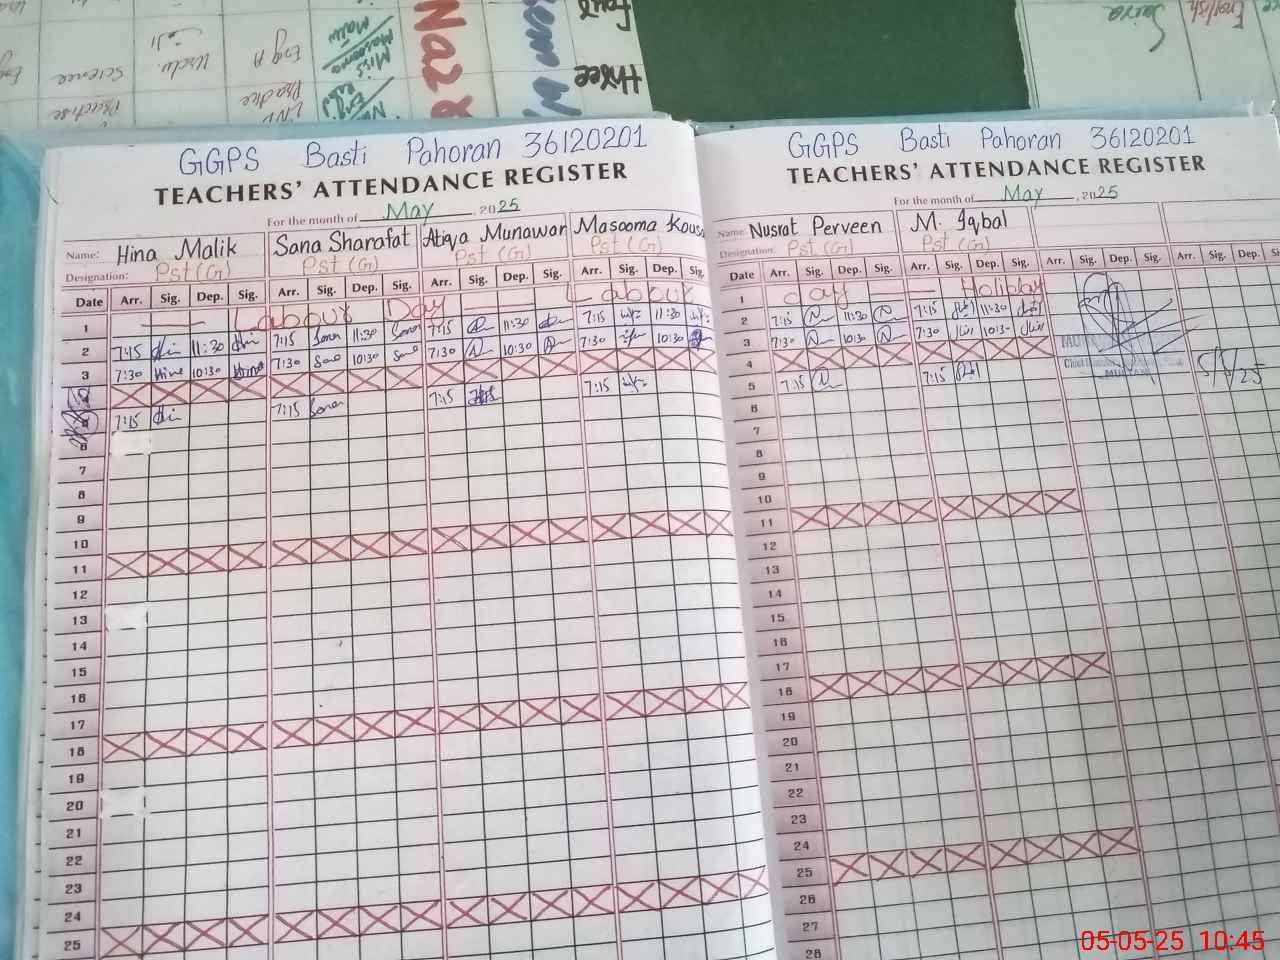 Four
Three
English
Saira
Eng A
Urdu
Science
Practice
Miss
Masooma
Malik
GGPS Basti Pahoran 36120201
TEACHERS' ATTENDANCE REGISTER
For the month of May, 2025
Name: Hina Malik Sana Sharafat Atiqa Munawar Masooma Kous
Designation: Pst (G) Pst (G) Pst (G) Pst (G)
Date Arr. Sig. Dep. Sig. Arr. Sig. Dep. Sig. Arr. Sig. Dep. Sig. Arr. Sig. Dep. Sig.
1 Labour Day Labour
2 7:15 11:30 7:15 Sana 11:30 Sana 7:15 11:30 7:15 11:30
3 7:30 Hina 10:30 Hina 7:30 Sana 10:30 Sana 7:30 10:30 7:30 10:30
5 7:15 7:15 Sana 7:15 7:15
6
7
8
9
10
11
12
13
14
15
16
17
18
19
20
21
22
23
24
25
GGPS Basti Pahoran 36120201
TEACHERS' ATTENDANCE REGISTER
For the month of May, 2025
Name: Nusrat Perveen M. Iqbal
Designation: Pst (G) Pst (G)
Date Arr. Sig. Dep. Sig. Arr. Sig. Dep. Sig. Arr. Sig. Dep. Sig. Arr. Sig. Dep. Sig.
1 day Holiday
2 7:15 11:30 7:15 11:30
3 7:30 10:30 7:30 10:30
4
5 7:15 7:15 5/5/25
6
7
8
9
10
11
12
13
14
15
16
17
18
19
20
21
22
23
24
25
26
27
28
05-05-25 10:45